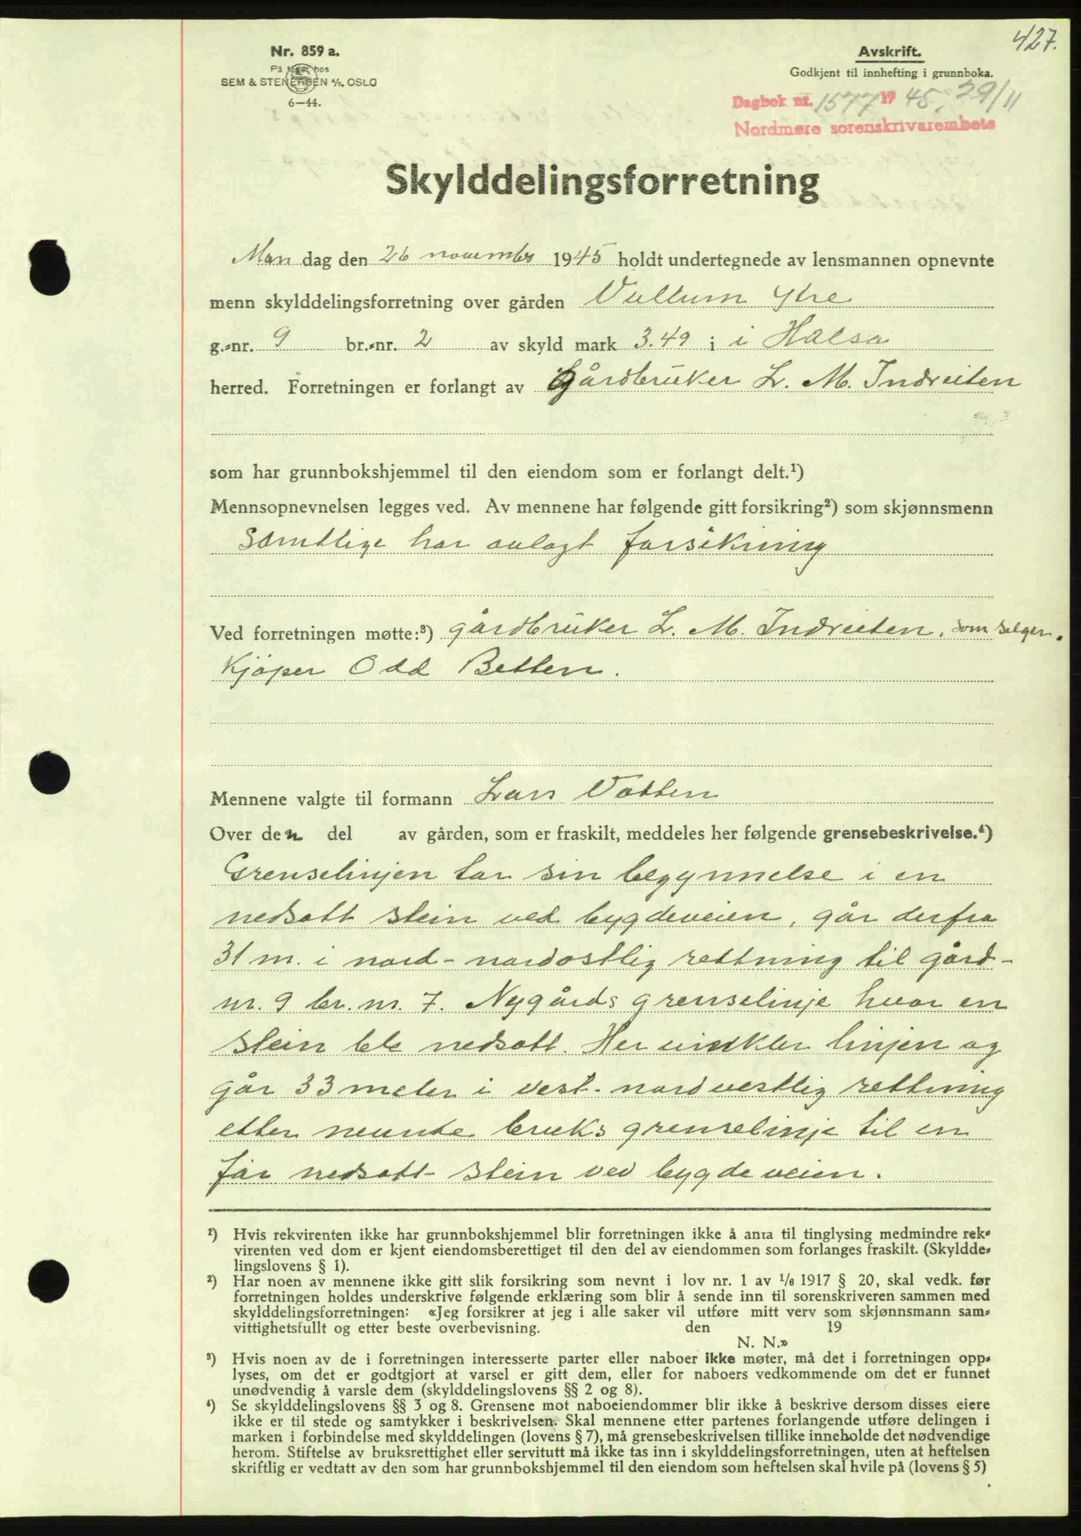 427.
Nr. 859 a.
På lager hos
SEM & STENERSEN A/S, OSLO
6—44.
Avskrift.
Godkjent til innhefting i grunnboka.
Dagbok nr. 1577 19 45, 29/11
Nordmøre sorenskrivarembete
Skylddelingsforretning
Man dag den 26 november 1945 holdt undertegnede av lensmannen opnevnte
menn skylddelingsforretning over gården Vullum ytre
g.-nr. 9 br.-nr. 2 av skyld mark 3.49 i i Halsa
herred. Forretningen er forlangt av Gårdbruker L. M. Indreiten
som har grunnbokshjemmel til den eiendom som er forlangt delt.¹)
Mennsopnevnelsen legges ved. Av mennene har følgende gitt forsikring²) som skjønnsmenn
Samtlige har avlagt forsikring
Ved forretningen møtte:³) gårdbruker L. M. Indreiten, som selger.
Kjøper Odd Betten.
Mennene valgte til formann Lars Vatten
Over den del av gården, som er fraskilt, meddeles her følgende grensebeskrivelse.⁴)
Grenselinjen tar sin begynnelse i en
nedsatt stein ved bygdeveien, går derfra
31 m. i nord-nordostlig rettning til gård-
nr. 9 br. nr. 7. Nygårds grenselinje hvor en
stein ble nedsatt. Her vinkler linjen og
går 33 meter i vest-nordvestlig rettning
etter nevnte bruks grenselinje til en
før nedsatt stein ved bygdeveien.
¹) Hvis rekvirenten ikke har grunnbokshjemmel blir forretningen ikke å anta til tinglysing medmindre rek-
virenten ved dom er kjent eiendomsberettiget til den del av eiendommen som forlanges fraskilt. (Skyldde-
lingslovens § 1).
²) Har noen av mennene ikke gitt slik forsikring som nevnt i lov nr. 1 av 1/6 1917 § 20, skal vedk. før
forretningen holdes underskrive følgende erklæring som blir å sende inn til sorenskriveren sammen med
skylddelingsforretningen: «Jeg forsikrer at jeg i alle saker vil utføre mitt verv som skjønnsmann sam-
vittighetsfullt og etter beste overbevisning. den 19
N. N.»
³) Hvis noen av de i forretningen interesserte parter eller naboer ikke møter, må det i forretningen opp-
lyses, om det er godtgjort at varsel er gitt dem, eller for naboers vedkommende om det er funnet
unødvendig å varsle dem (skylddelingslovens §§ 2 og 8).
⁴) Se skylddelingslovens §§ 3 og 8. Grensene mot naboeiendommer blir ikke å beskrive dersom disses eiere
ikke er til stede og samtykker i beskrivelsen. Skal mennene etter partenes forlangende utføre delingen i
marken i forbindelse med skylddelingen (lovens § 7), må grensebeskrivelsen tillike inneholde det nødvendige
herom. Stiftelse av bruksrettighet eller servitutt må ikke tas inn i skylddelingsforretningen, uten at heftelsen
skriftlig er vedtatt av den som har grunnbokshjemmel til den eiendom som heftelsen skal hvile på (lovens § 5)